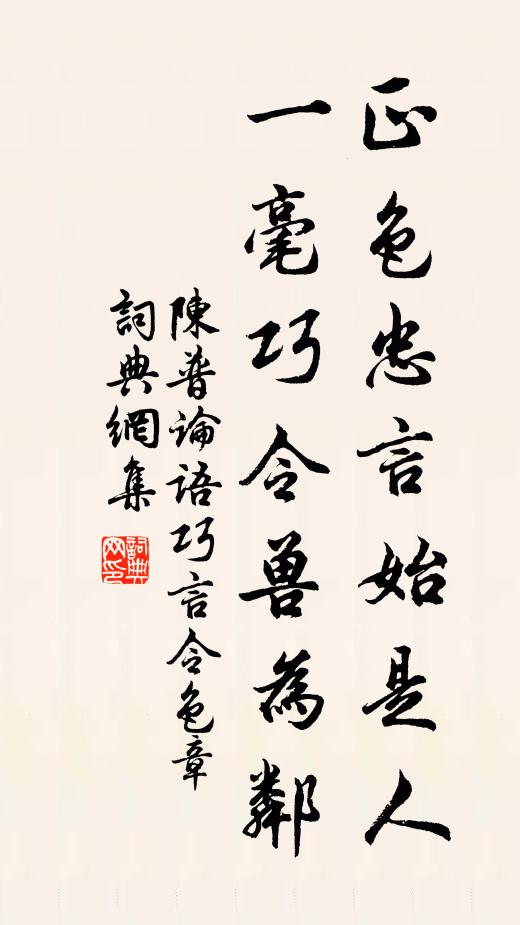 正色忠言始是人
一毫巧令兽為鄰
陳普論語巧言令色章
詞典網集
詞典网印